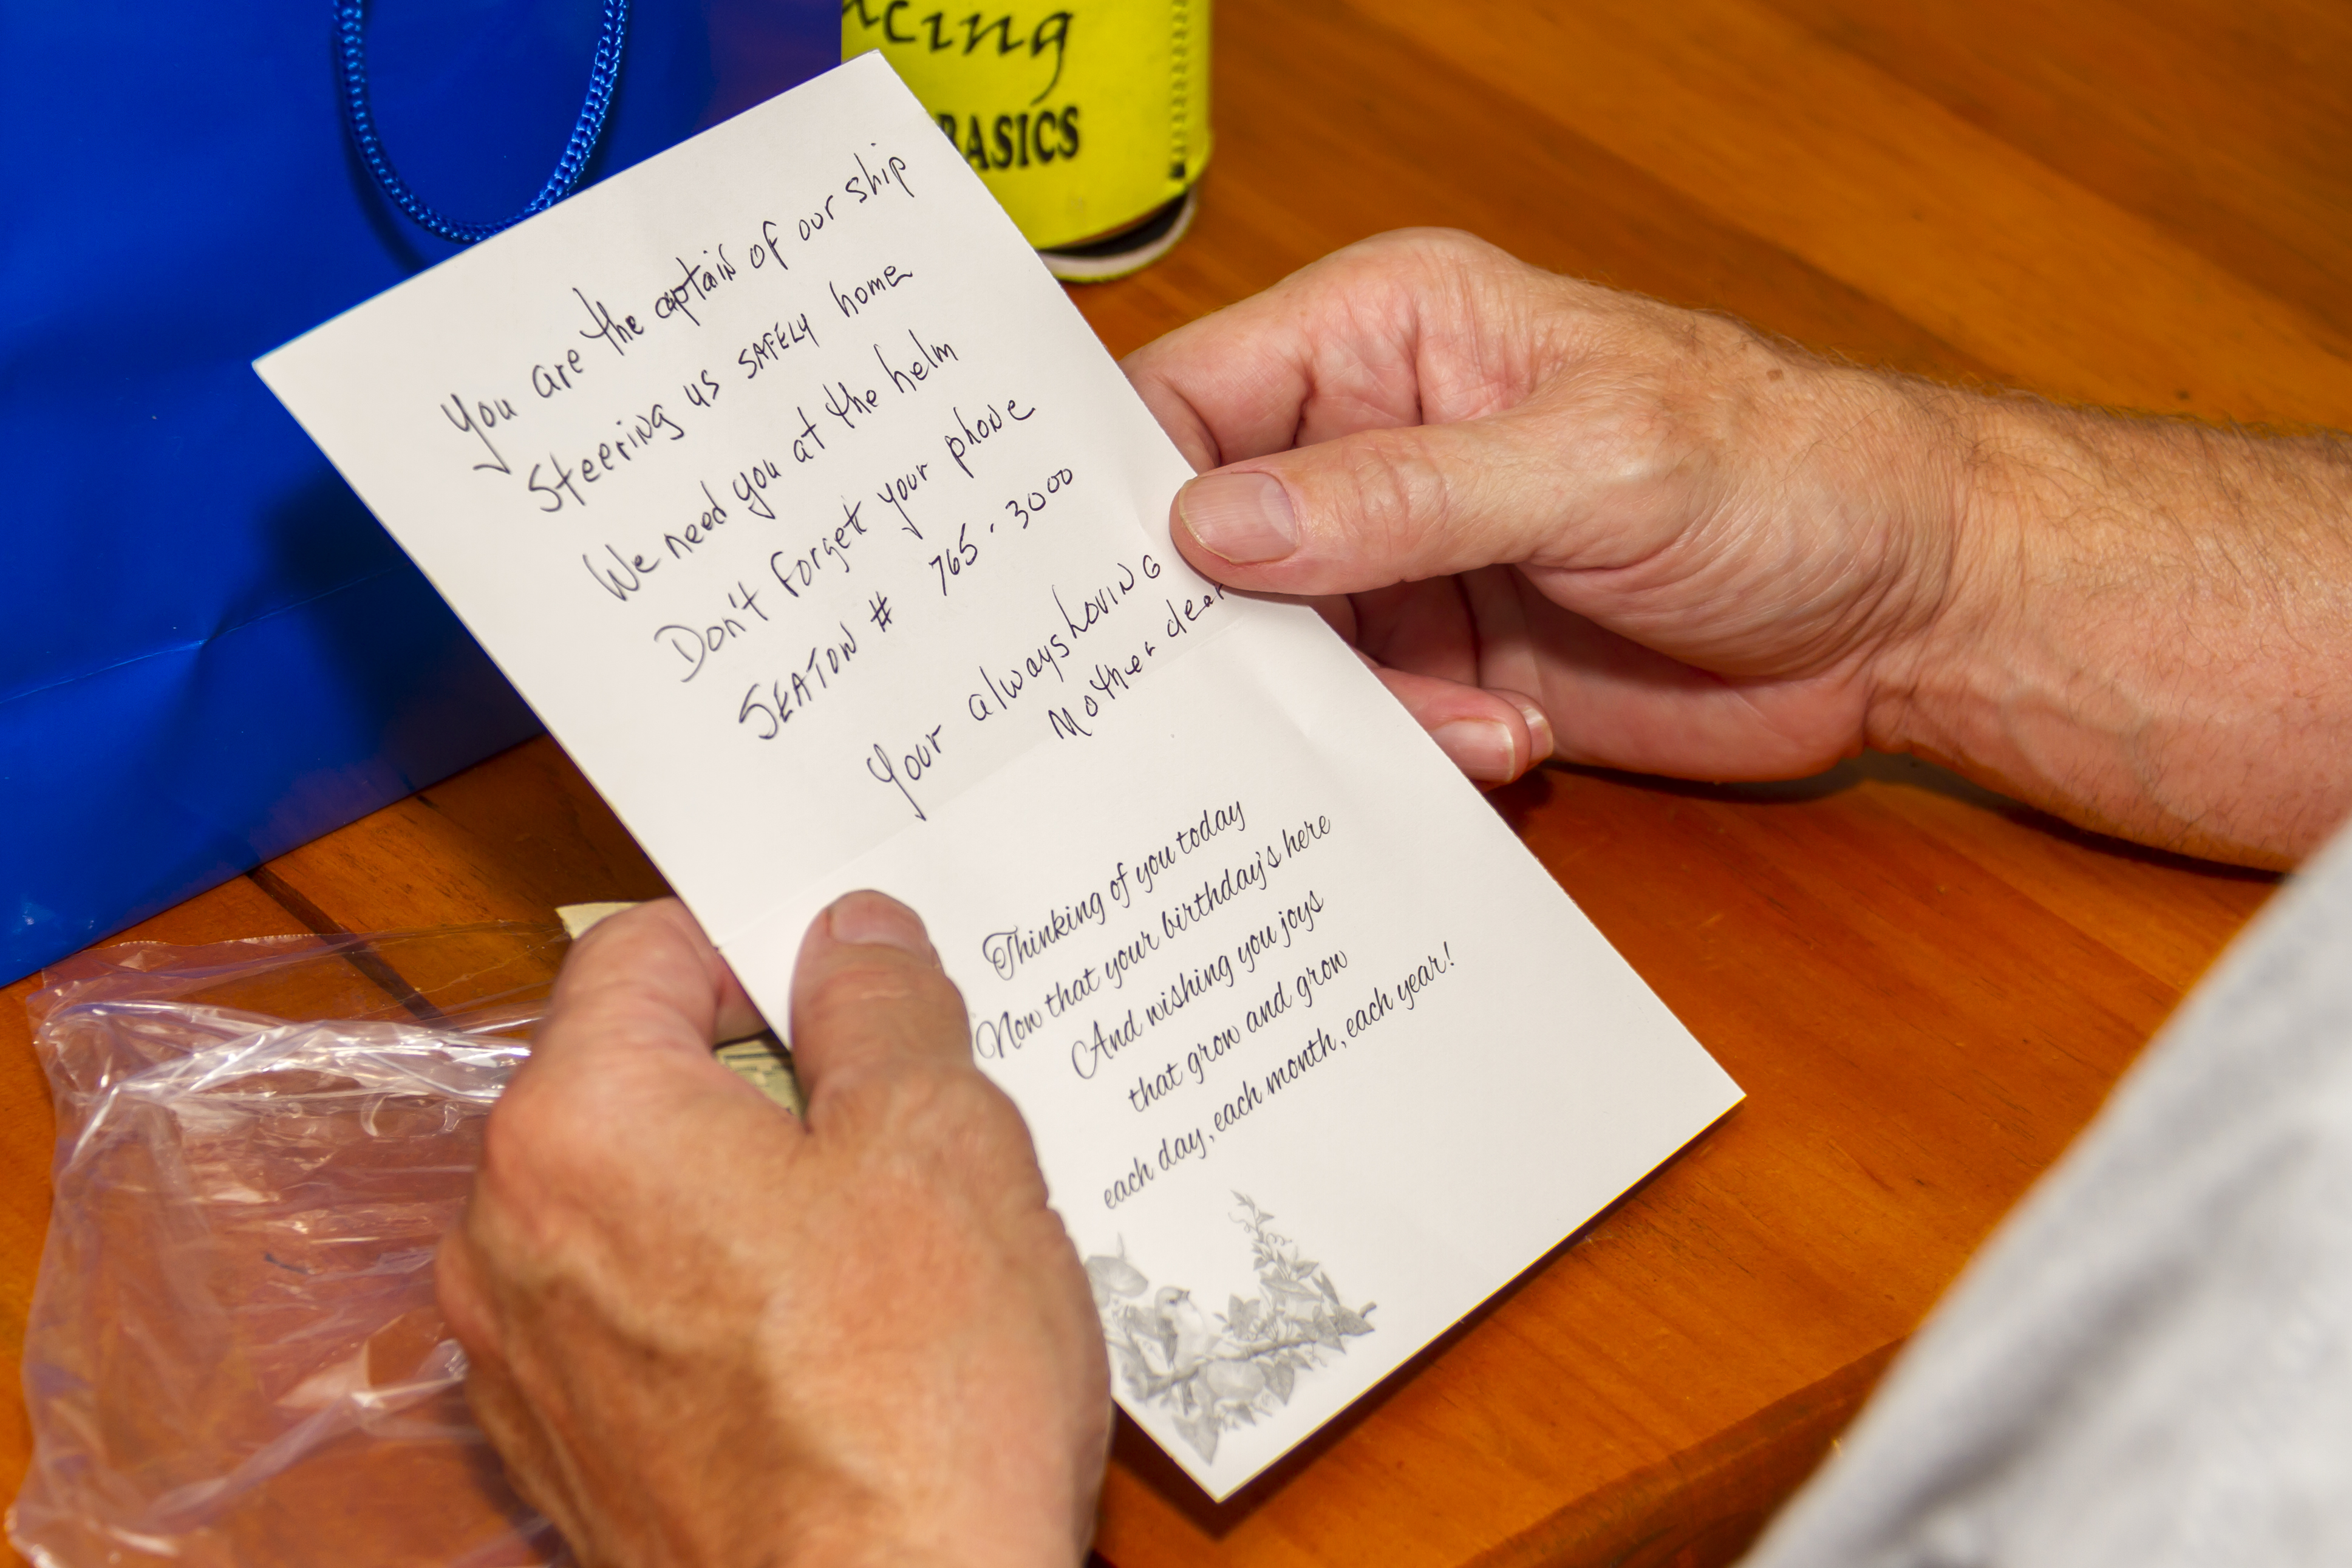 cing
BASICS
You are the captain of our ship
Steering us SAFELY home
We need you at the helm
Don't Forget your phone
SEATON # 765-3000
Your always Loving
Mother dear
Thinking of you today
Now that your birthday's here
And wishing you joys
that grow and grow
each day, each month, each year!